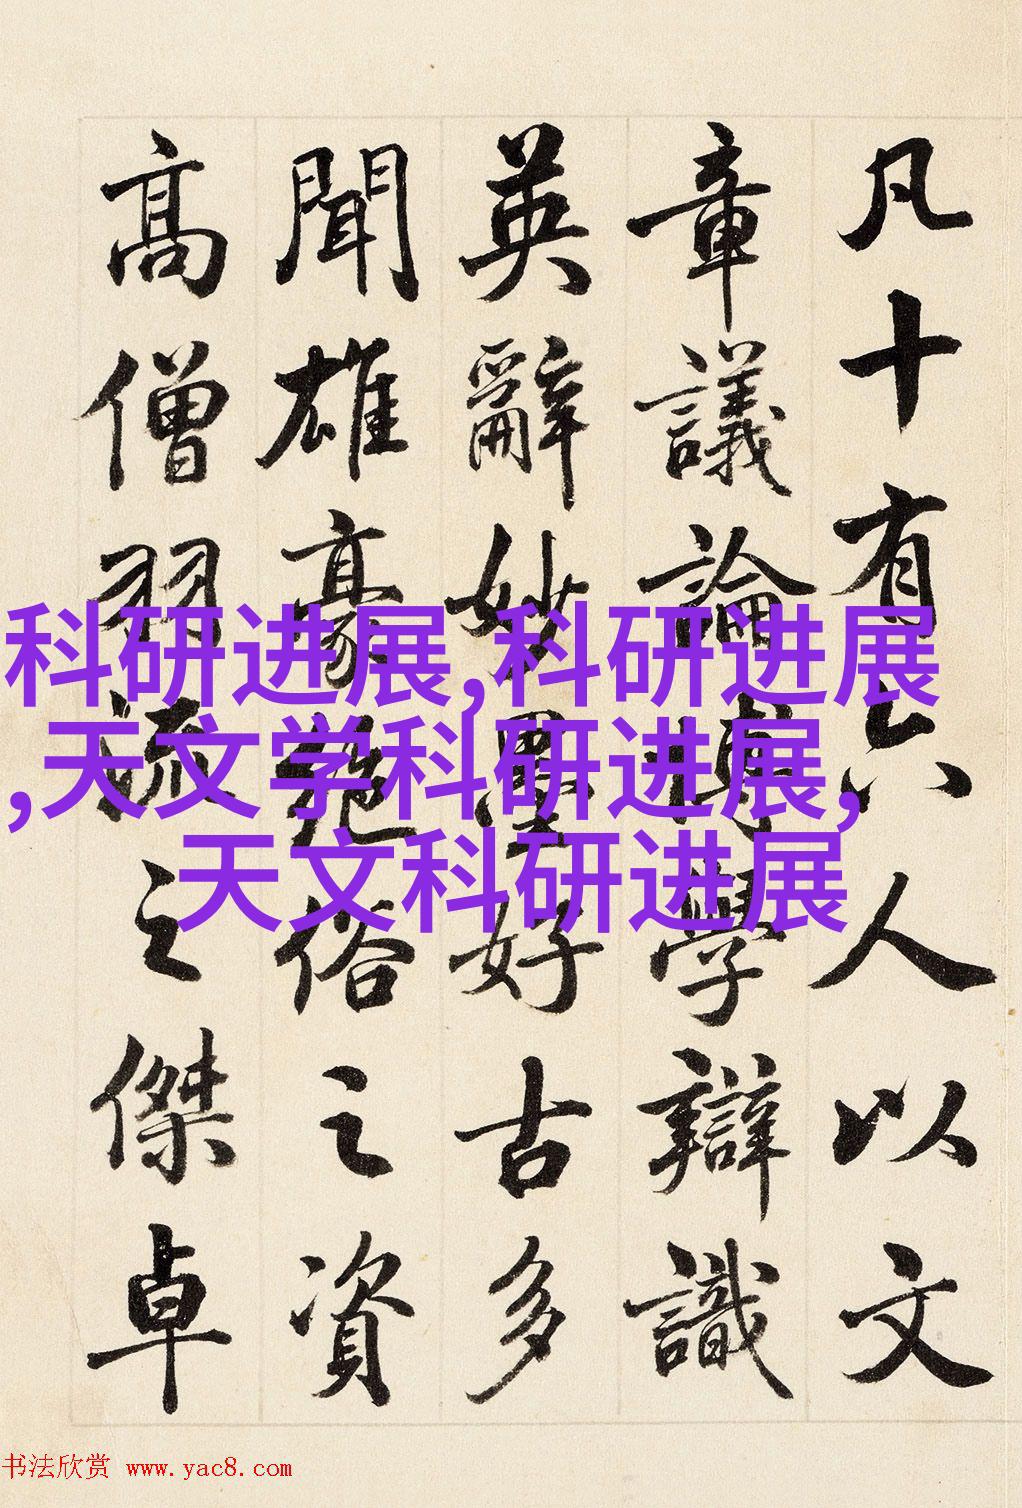 凡十有六人以文
章議論博學辯識
英辭妙墨好古多
聞雄豪絕俗之資
高僧羽流之傑卓
科研进展,科研进展
,天文学科研进展,
天文科研进展
书法欣赏 www.yac8.com